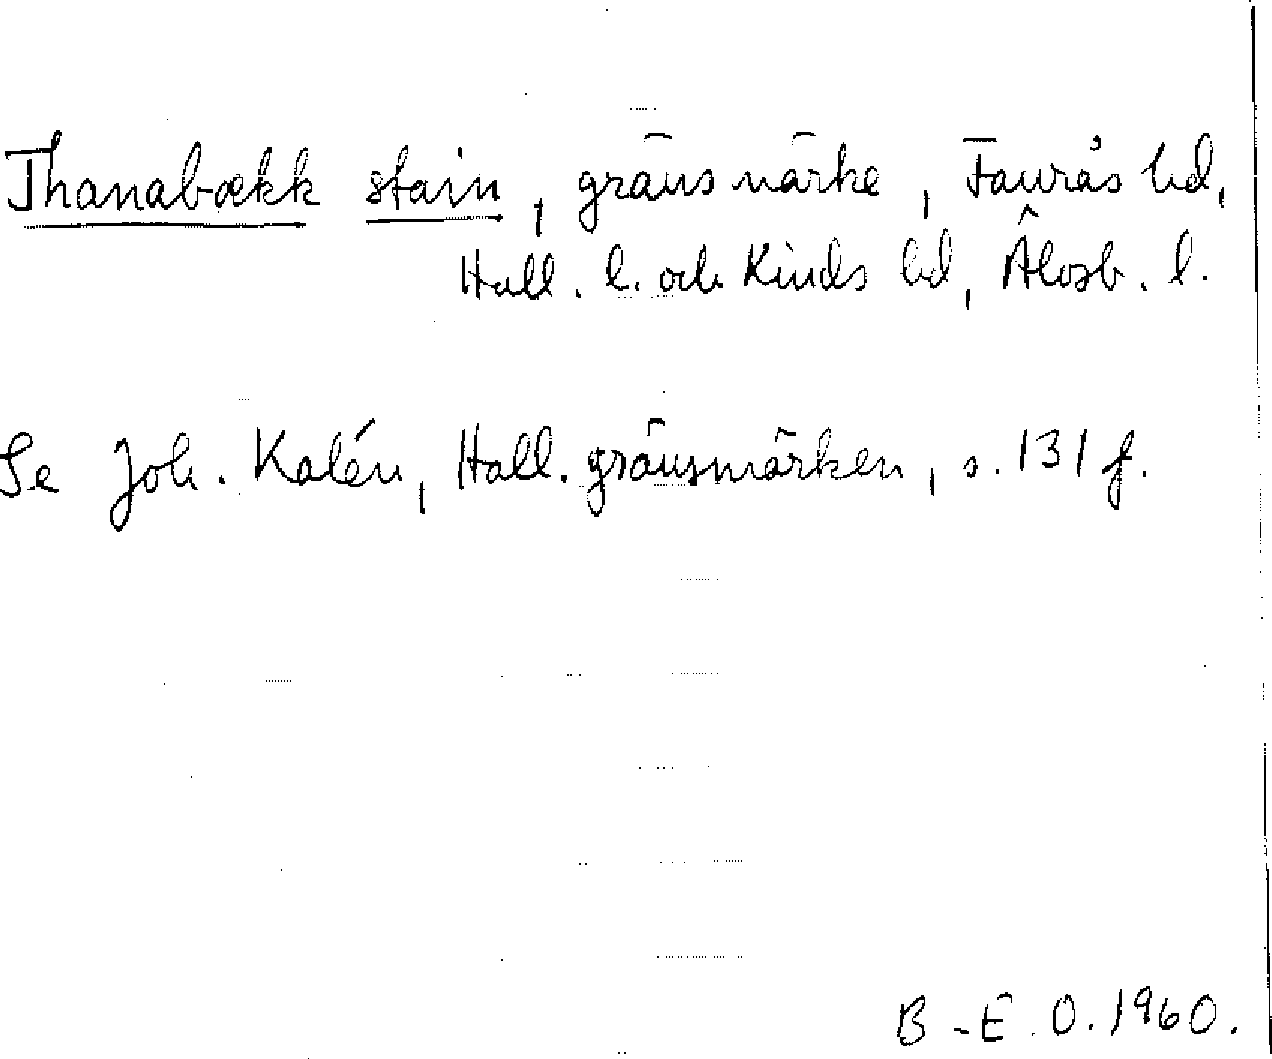 Thanabækk stain, gränsmärke, Faurås hd,
Hall. l. och Kinds hd, Älvsb. l.
Se Joh. Kalén, Hall. gränsmärken, s. 131 f.
B-E. O. 1960.